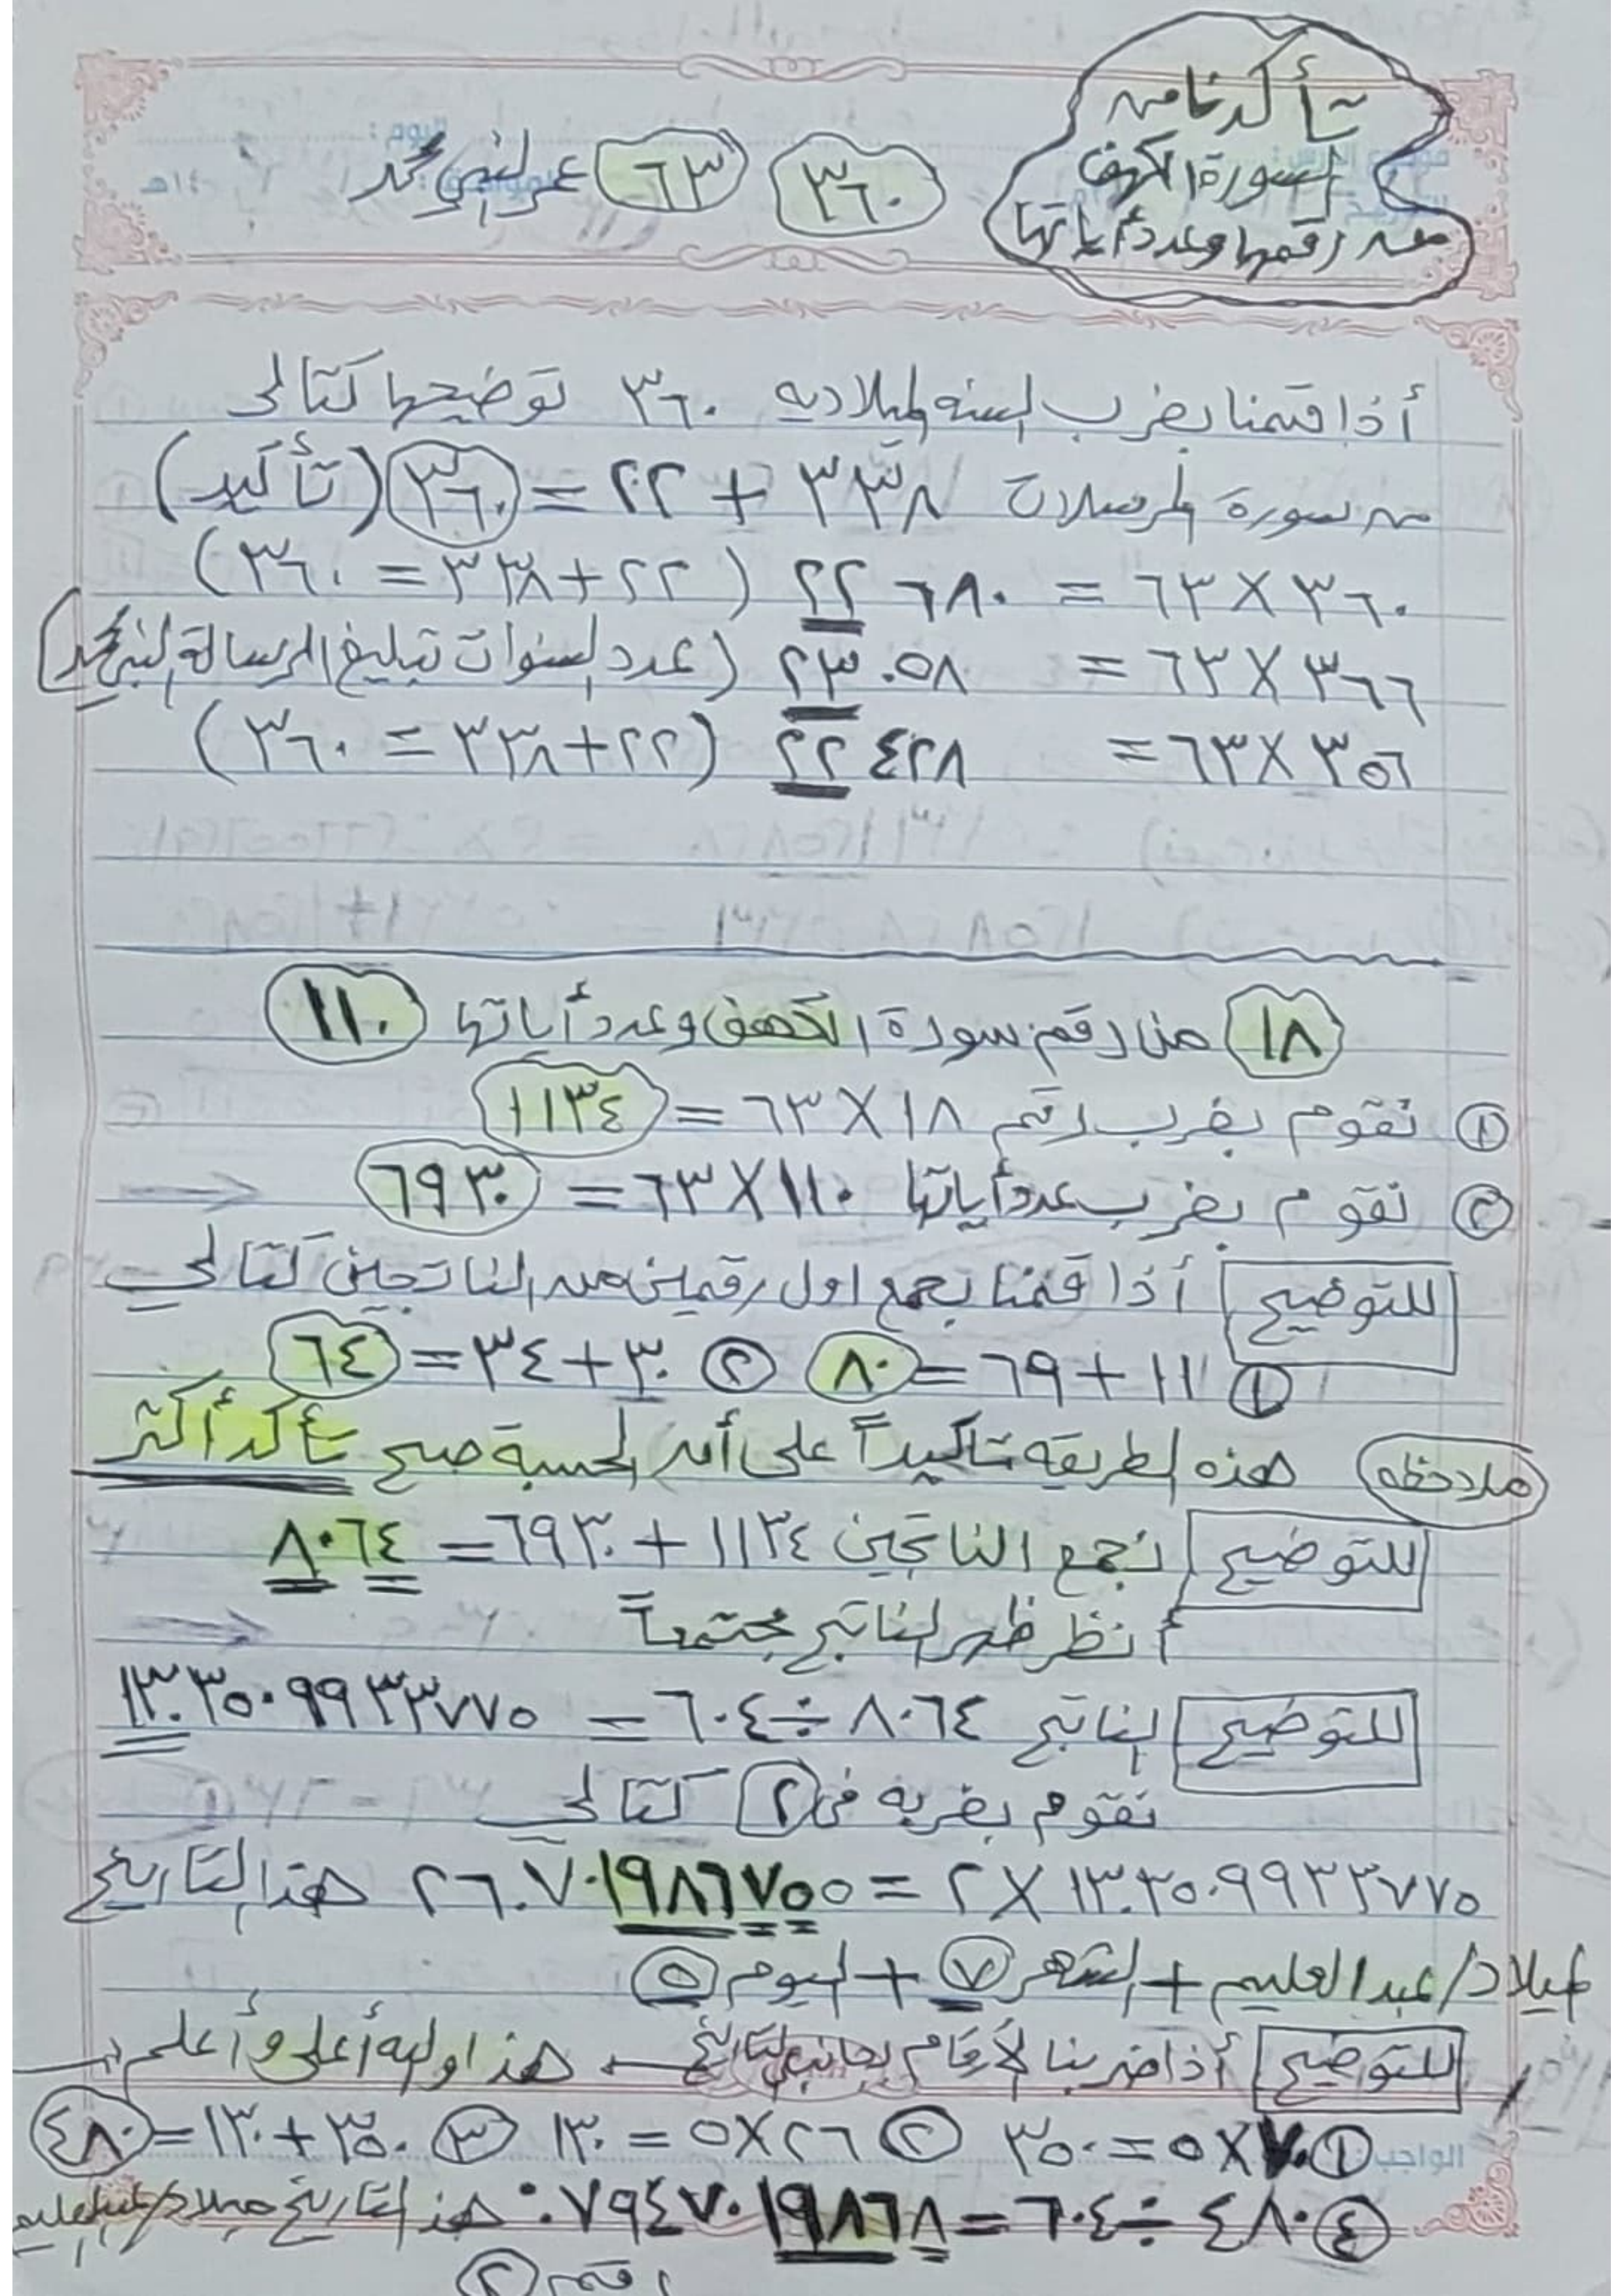 تأكدنا من
سورة الكهف
من رقمها وعدد أياتها
٣٦٠ ٦٣ عمر النبي محمد
أذا قمنا بضرب السنه الميلاديه ٣٦٠ توضيحها كتالى
من سورة المرسلات ٣٣٨ + ٢٢ = ٣٦٠ (تأكيد)
٣٦٠ × ٦٣ = ٢٢٦٨٠ (٢٢+٣٣٨ = ٣٦٠)
٣٦٦ × ٦٣ = ٢٣٠٥٨ (عدد السنوات تبليغ الرسالة النبي محمد)
٣٥٦ × ٦٣ = ٢٢٤٢٨ (٢٢+٣٣٨ = ٣٦٠)
١٨ من رقم سورة الكهف وعدد أياتها ١١٠
① نقوم بضرب رقم ١٨ × ٦٣ = ١١٣٤
② نقوم بضرب عدد أياتها ١١٠ × ٦٣ = ٦٩٣٠
للتوضيح أذا قمنا بجمع اول رقمين من الناتجين كتالي
① ١١ + ٦٩ = ٨٠ ② ٣٠ + ٣٤ = ٦٤
ملاحظه هذه الطريقه تأكيداً على أن الحسبة صح تأكد أكثر
للتوضيح نجمع الناتجين ١١٣٤ + ٦٩٣٠ = ٨٠٦٤
أنظر ظهر الناتج مجتمعاً
للتوضيح الناتج ٨٠٦٤ ÷ ٦٠٤ = ١٣.٣٥٠٩٩٣٣٧٧٥
نقوم بضربه في ٢ كتالى
١٣.٣٥٠٩٩٣٣٧٧٥ × ٢ = ٢٦.٧٠١٩٨٦٧٥٥ هذا التاريخ
ميلاد/عبدالعليم + الشهر ٧ + اليوم ٥
للتوضيح أذا ضربنا الأرقام بجانب التاريخ هذا وليه أعلى وأعلم
① ٧٠ × ٥ = ٣٥٠ ② ٢٦ × ٥ = ١٣٠ ③ ٣٥٠ + ١٣٠ = ٤٨٠
④ ٤٨٠ ÷ ٦٠٤ = ٠.٧٩٤٧٠١٩٨٦٨ هذا التاريخ ميلاد/عبدالعليم
رقم ②
الواجب